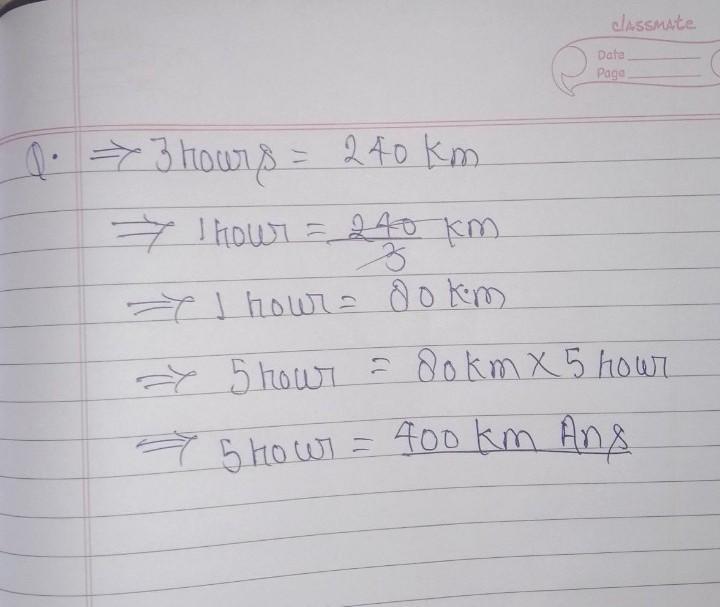 classmate
Date
Page
Q. ⇒ 3 hours = 240 km
⇒ 1 hour = 240/3 km
⇒ 1 hour = 80 km
⇒ 5 hour = 80 km × 5 hour
⇒ 5 hour = 400 km Ans